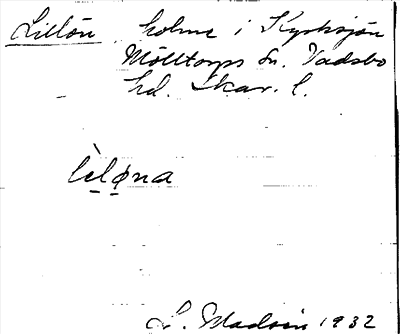 Lillön holme i Kyrksjön
Mölltorps sn. Vadsbo
hd. Skar. l.
lìløna
L. Madsén 1932